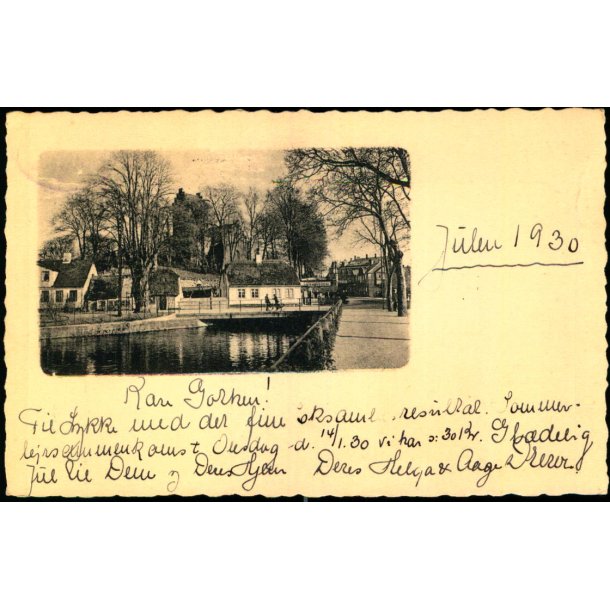 Julen 1930
Kære Gorken!
Til Lykke med det fine eksamensresultat. Sommer-
lejrsammenkomst Onsdag d. 14/1.30 vi har Glædelig
Jul til Dem og Deres Hjem Deres Helga & Aage